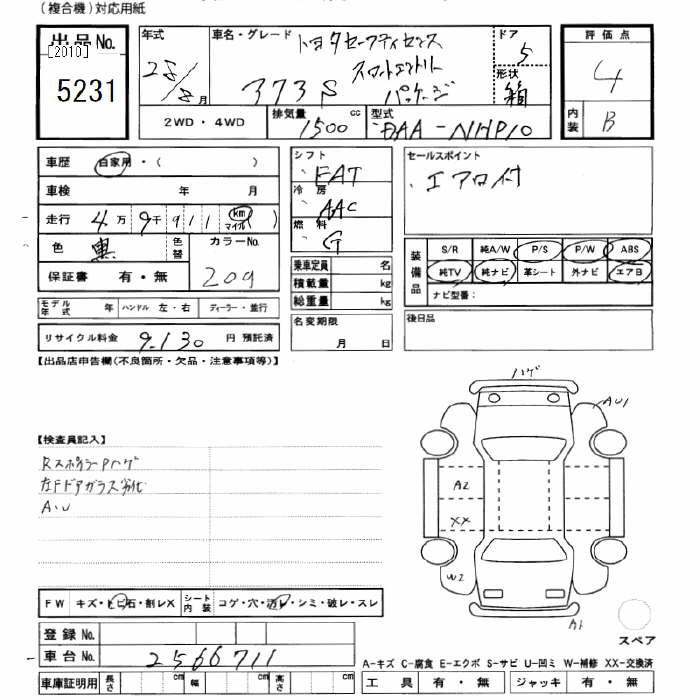 (複合機)対応用紙
出品No.
[2010]
5231
年式
28/8月
車名・グレード
トヨタセーフティセンス
スマートエントリー
373S パッケージ
ドア
5
形状
箱
2WD・4WD
排気量
1500 cc
型式
DAA-NHP10
評価点
4
内装
B
車歴 自家用・( )
車検 年 月
走行 4万9千911 (km マイル)
色 黒 色替 カラーNo.
209
保証書 有・無
モデル年式 年 ハンドル 左・右 ディーラー・並行
リサイクル料金 9,130 円 預託済
シフト
FAT
冷房
AAC
燃料
G
乗車定員 名
積載量 kg
総重量 kg
名変期限
月 日
セールスポイント
・エアロ付
装備品
S/R 純A/W P/S P/W ABS
純TV 純ナビ 革シート 外ナビ エアB
ナビ型番:
後日品
【出品店申告欄(不良箇所・欠品・注意事項等)】
【検査員記入】
RスポイラーPハゲ
左Fドアガラス劣化
A・U
ハゲ
AU1
A2
XX
W2
A1
スペア
FW キズ・トビ石・割レX シート内装 コゲ・穴・汚レ・シミ・破レ・スレ
登録No.
車台No. 2566711
車庫証明用 長さ cm 幅 cm 高さ cm
A-キズ C-腐食 E-エクボ S-サビ U-凹ミ W-補修 XX-交換済
工具 有・無 ジャッキ 有・無